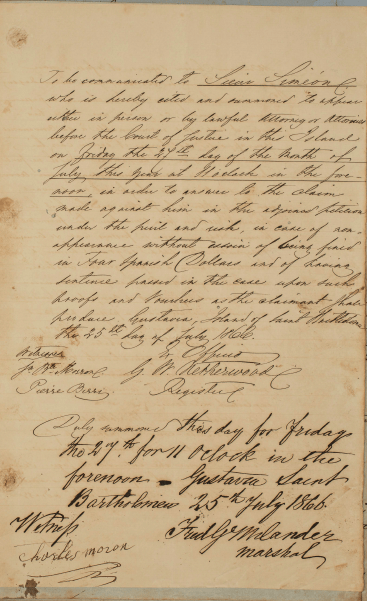 To be communicated to Sieur Siméon
who is hereby cited and summoned to appear
either in person or by lawful Attorney or Attornies
before the Court of Justice in this Island
on Friday the 27th day of the Month of
July, this year at 11 oclock in the fore-
noon, in order to answer to the claim
made against him in the adjoined petition
under the peril and risk, in case of non-
appearance without of being fined
in Four Spanish Dollars and of having
sentence passed in the case upon such
proofs and vouchers as the claimant shall
produce Gustavia, Island of Saint Bartholomew
the 25th day of July 1866.
Witnesses Ex Officio
Jn Wm Moron G. W. Netherwood
Pierre Berri Register
Duly summoned this day for Friday
the 27th for 11 Oclock in the
forenoon - Gustavia Saint
Bartholomew 25th July 1866
Witness Fred G Wolander
Charles Moron marshal